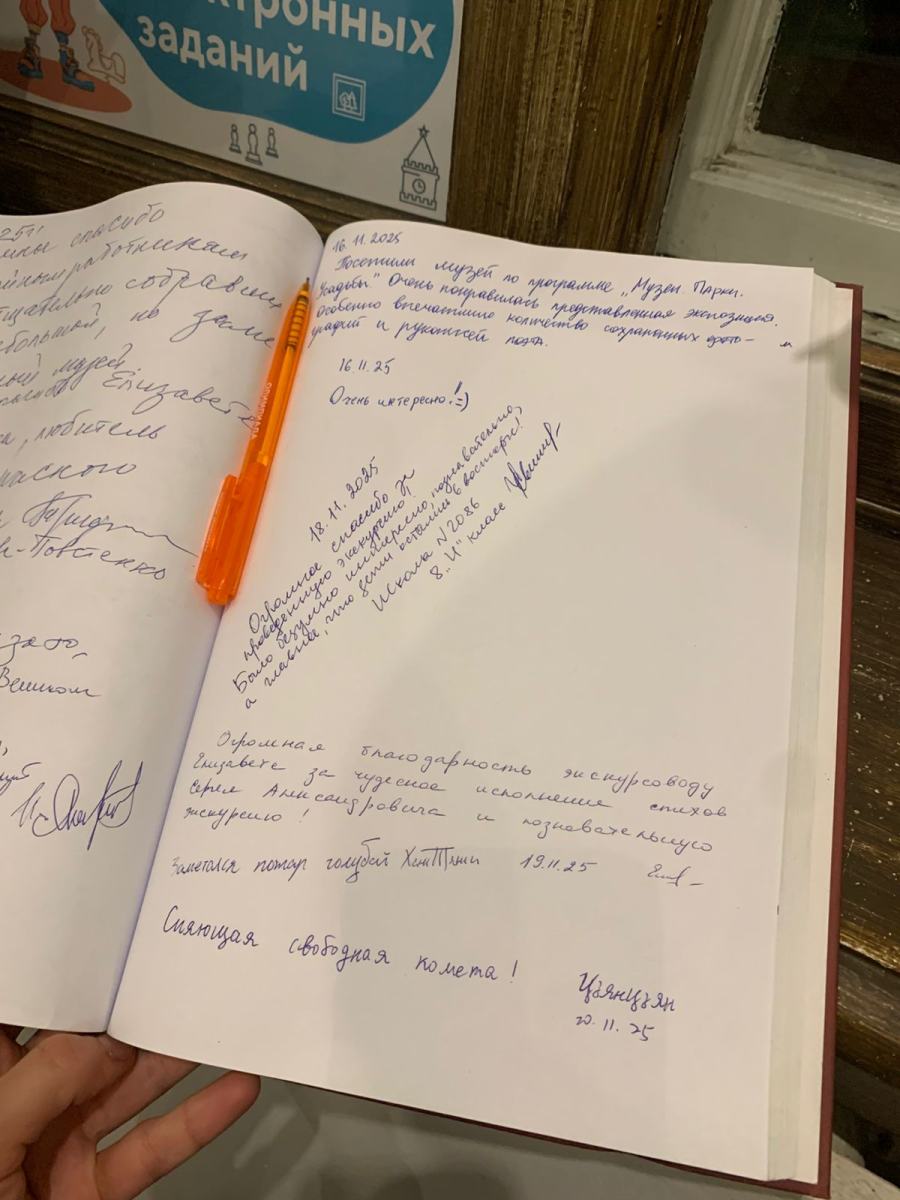 ктронных
заданий
25!
спасибо
работникам
тщательно собравшим
небольшой, но
музей
Елизавете
любитель
-Повстенко
зато,
Великом
16.11.2025
Посетили музей по программе „Музеи. Парки.
Усадьбы". Очень понравилась представленная экспозиция.
Особенно впечатлило количество сохраненных фото-
графий и рукописей поэта.
16.11.25
Очень интересно! =)
18.11.2025
Огромное спасибо за
проведенную экскурсию!
Было безумно интересно, познавательно,
а главное, что дети остались в восторге!
Школа №2086
8 „И" класс
Огромная благодарность экскурсоводу
Елизавете за чудесное исполнение стихов
Сергея Александровича и познавательную
экскурсию!
Заметался пожар голубой 19.11.25
Сияющая свободная комета!
Цзянцзян
20.11.25
ОЛИМПИАДА